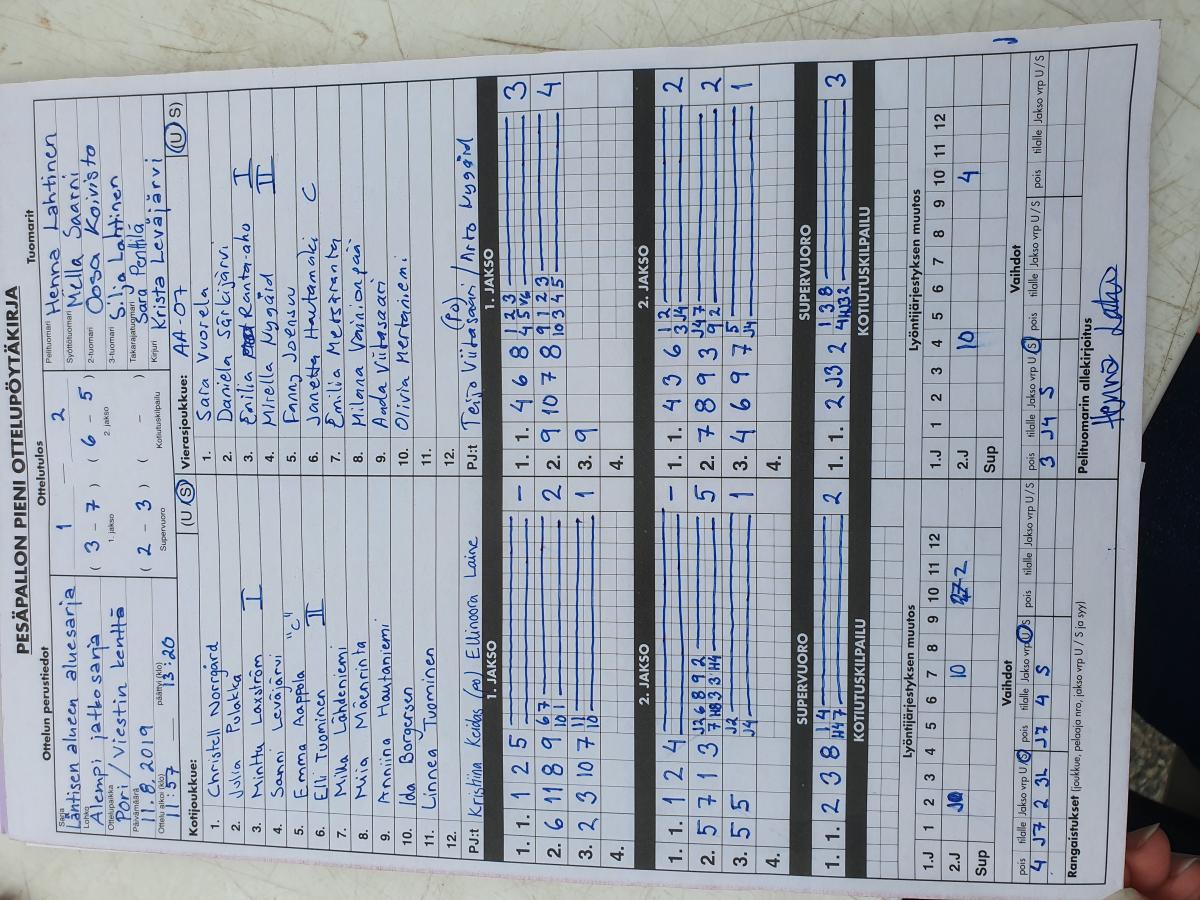 PESÄPALLON PIENI OTTELUPÖYTÄKIRJA
Ottelun perustiedot
Sarja
Läntisen alueen aluesarja
Lohko
Alempi jatkosarja
Ottelupaikka
Pori / Viestin kenttä
Päivämäärä
11.8.2019
Ottelu alkoi (klo) päättyi (klo)
11:57 13:20
Ottelutulos
1 2
( 3 - 7 ) ( 6 - 5 )
1. jakso 2. jakso
( 2 - 3 ) ( - )
Supervuoro Kotiutuskilpailu
Tuomarit
Pelituomari Henna Lahtinen
Syöttötuomari Mella Saarni
2-tuomari Oosa Koivisto
3-tuomari Silja Lahtinen
Takarajatuomari Sara Penttilä
Kirjuri Krista Leväjärvi
Kotijoukkue: (U S)
1. Christell Norrgård
2. Julia Pulakka
3. Minttu Laxström I
4. Sanni Leväjärvi
5. Emma Aappola "C"
6. Elli Tuominen II
7. Milka Lähdeniemi
8. Mia Männinta
9. Anniina Hautaniemi
10. Ida Borgersen
11. Linnea Tuominen
12.
PJ:t Kristiina Keidas (po) Ellinoora Laine
Vierasjoukkue: AA-07 (U S)
1. Sara Vuorela
2. Daniela Särkijärvi
3. Emilia Ranta-aho I
4. Mirella Nygård II
5. Fanny Joensuu
6. Janetta Hautamäki C
7. Emilia Messaranta
8. Milana Vainionpää
9. Aada Viitasaari
10. Olivia Mertaniemi
11.
12.
PJ:t Teijo Viitasaari (po) / Arto Nygård
1. JAKSO
1. 1. 1 2 5 -
2. 6 11 8 9 6 7 10 1 2
3. 2 3 10 7 11 10 1
4.
1. JAKSO
1. 1. 4 6 8 1 2 3 4 5 v6 3
2. 9 10 7 8 9 1 2 3 10 3 4 5 4
3. 9
4.
2. JAKSO
1. 1. 1 2 4 -
2. 5 7 1 3 J2 6 8 9 2 5
3. 5 5 J2 J4 1
4.
2. JAKSO
1. 1. 4 3 6 1 2 3 J4 2
2. 7 8 9 3 J4 7 9 2 2
3. 4 6 9 7 5 J4 1
4.
SUPERVUORO
1. 1. 2 3 8 1 4 H4 7 2
SUPERVUORO
1. 1. 2 J3 2 1 3 8 3
KOTIUTUSKILPAILU
KOTIUTUSKILPAILU
Lyöntijärjestyksen muutos
1.J 1 2 3 4 5 6 7 8 9 10 11 12
2.J 10 2
Sup
Lyöntijärjestyksen muutos
1.J 1 2 3 4 5 6 7 8 9 10 11 12
2.J 10 4
Sup
Vaihdot
pois tilalle Jakso vrp U/S pois tilalle Jakso vrp U/S pois tilalle Jakso vrp U/S
4 J7 2 3L J7 4 S
Vaihdot
pois tilalle Jakso vrp U/S pois tilalle Jakso vrp U/S pois tilalle Jakso vrp U/S
3 J4 S
Rangaistukset (joukkue, pelaaja nro, jakso vrp U / S ja syy)
Pelituomarin allekirjoitus